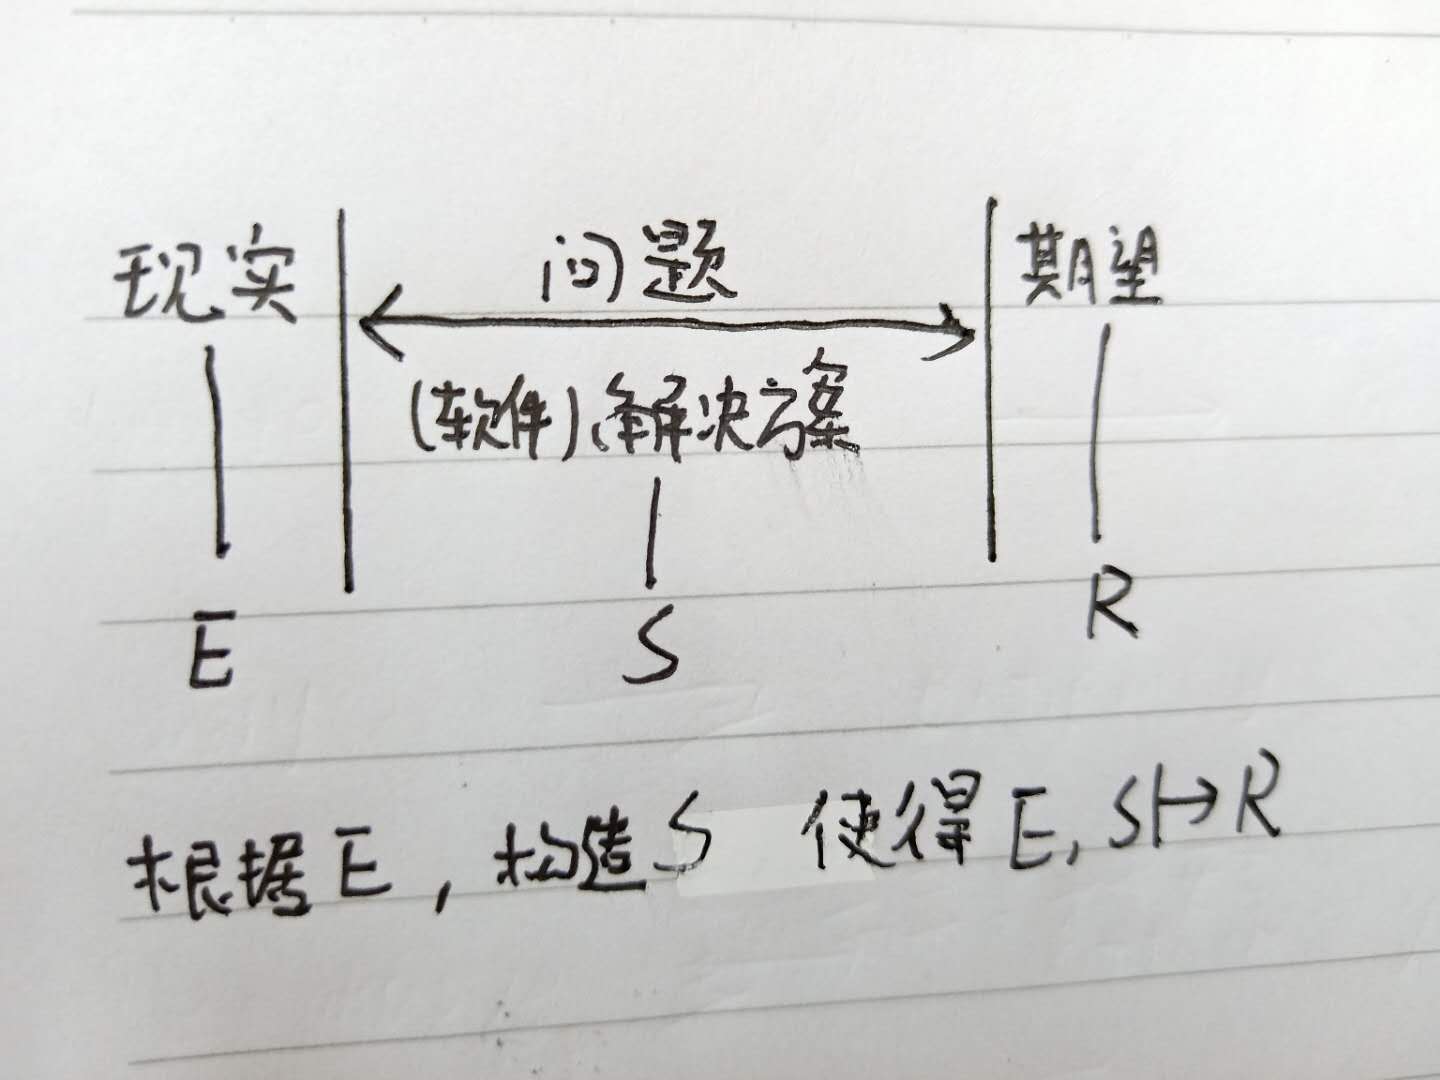 现实 问题 期望
(软件)解决方案
E S R
根据E，构造S 使得E,S↦R